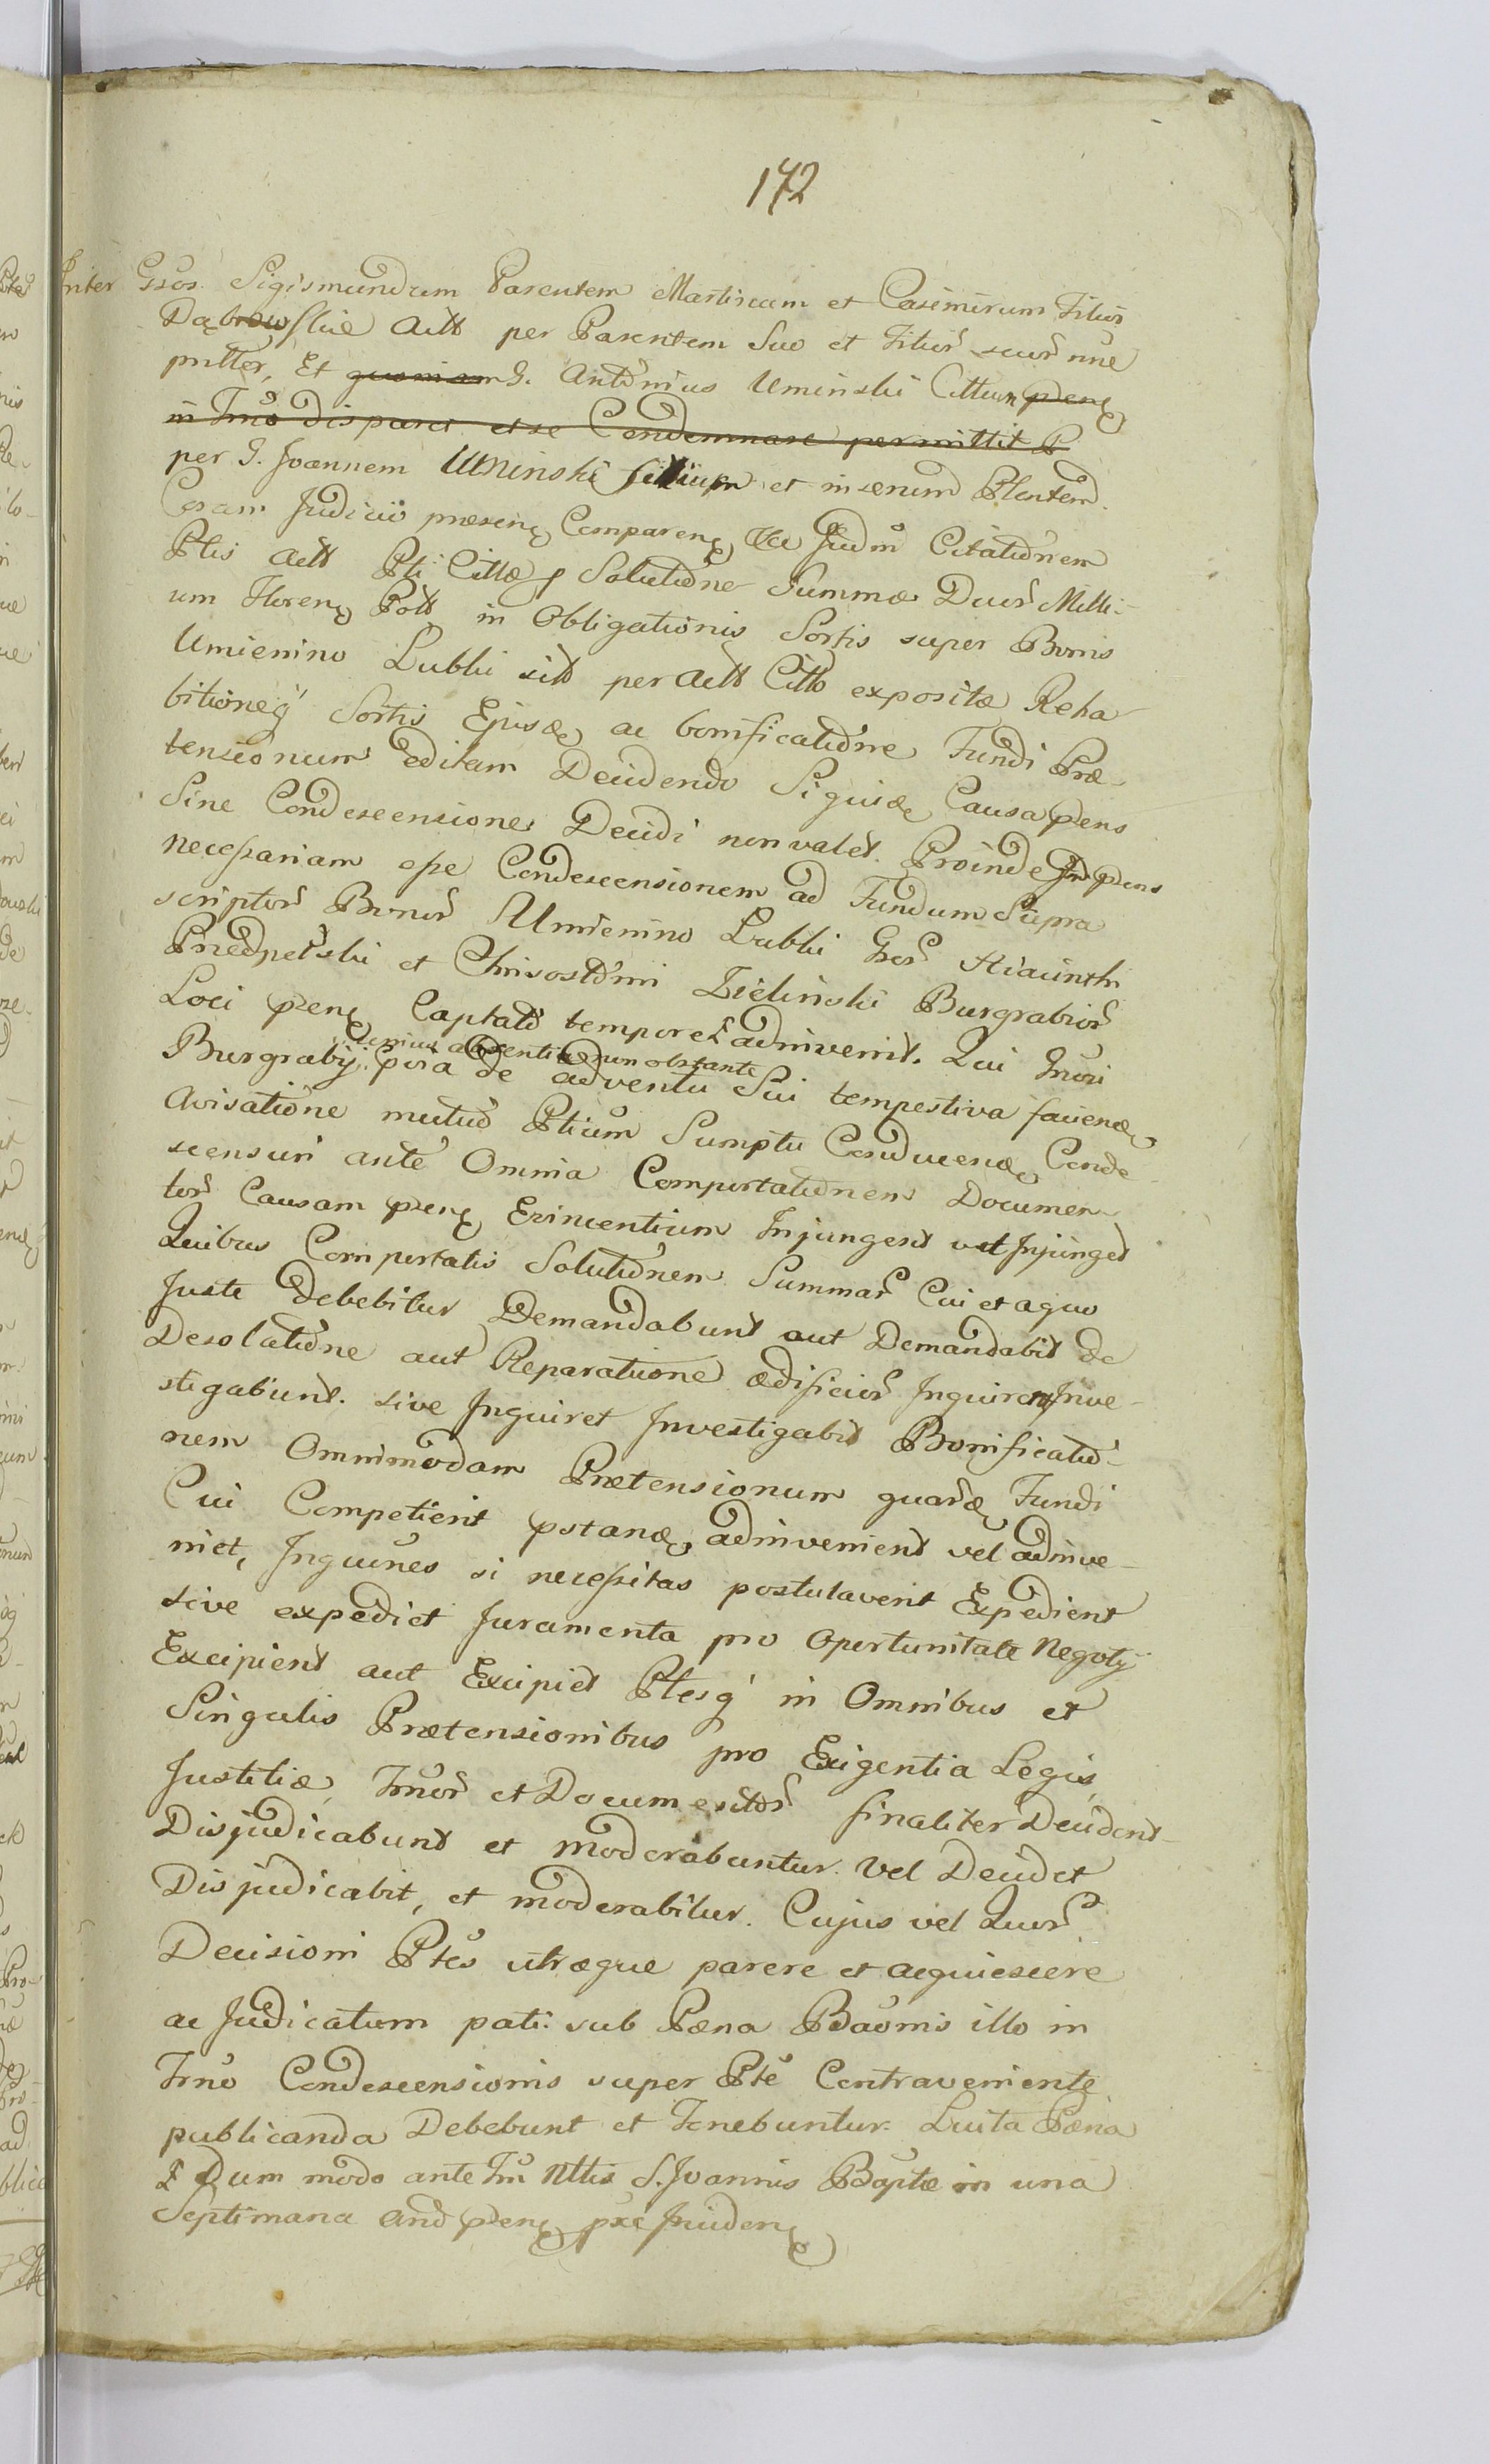 172
Inter Gsos. Sigismundum Parentem Martinum et Casimirum Filios
Dąbrowskie Actt per Parentem Suo et Filior suor nne
pntter, Et quoniam G. Antonius Uminski Cittum pens
in Trno disparet et se Condemnare permittit P
per G. Joannem Uminski filium et in rerum Ptentem
Coram Judicio præsens Comparens Judm Citationem
Ptis Actt Pti Cittæ p Solutione Summæ Duor Milli-
um Floren Poll in Obligationis Sortis super Bonis
Umienino Lubki sitt per Actt Citto expositæ Reha-
bitioneq Sortis Ejusd ac bonificatione Fundi Præ-
tensionum editam Decidendo Siquid Causa pens
Sine Condescensione Decidi non valet. Proinde Jud pens
necessariam esse Condescensionem ad Fundum Supra
scriptor Bonor Umienino Lubki Gser Hiacinthi
Przedpełski et Chrisostomi Zieliński Burgrabior
Loci pens Captato tempore adinvenit. Qui Gnosi
unius absentia non obstante
Burgrabij pvia de adventu Sui tempestiva faciend
Avisatione mutuo Ptium Sumptu Conducend Conde
scensuri ante Omnia Comportationem Documen
tor Causam pens Evincentium Injungent vel Injunget
Quibus Comportatis Solutionem Summar Cui et a quo
Juste debebitur Demandabunt aut Demandabit de
Desolatione aut Reparatione ædificior Inquirent Inve-
stigabunt. sive Inquiret Investigabit Bonificatio-
nem Omnimodam Prætensionum quard Fundi
Cui Competierit pstand, adinvenient vel adinve-
niet, Inquines si necessitas postulaverit Expedient
sive expediet Juramenta pro Oportunitate Negotij
Excipient aut Excipiet Ptesq in Omnibus et
Singulis Prætensionibus pro Exigentia Legis,
Justitiæ, Jnor et Documentor finaliter Decident
Disjudicabunt et moderabuntur. Vel Decidet
Disjudicabit, et moderabitur. Cujus vel Quor
Decisioni Ptes utræque parere et acquiescere
ac Judicatum pati sub Pæna Baonis illo in
Trno Condescensionis super Pte Contraveniente
publicanda Debebunt et Tenebuntur. Luita Pæna
Dum modo ante Trm Nttis S. Joannis Baptæ in una
Septimana And pens pxe Inciden